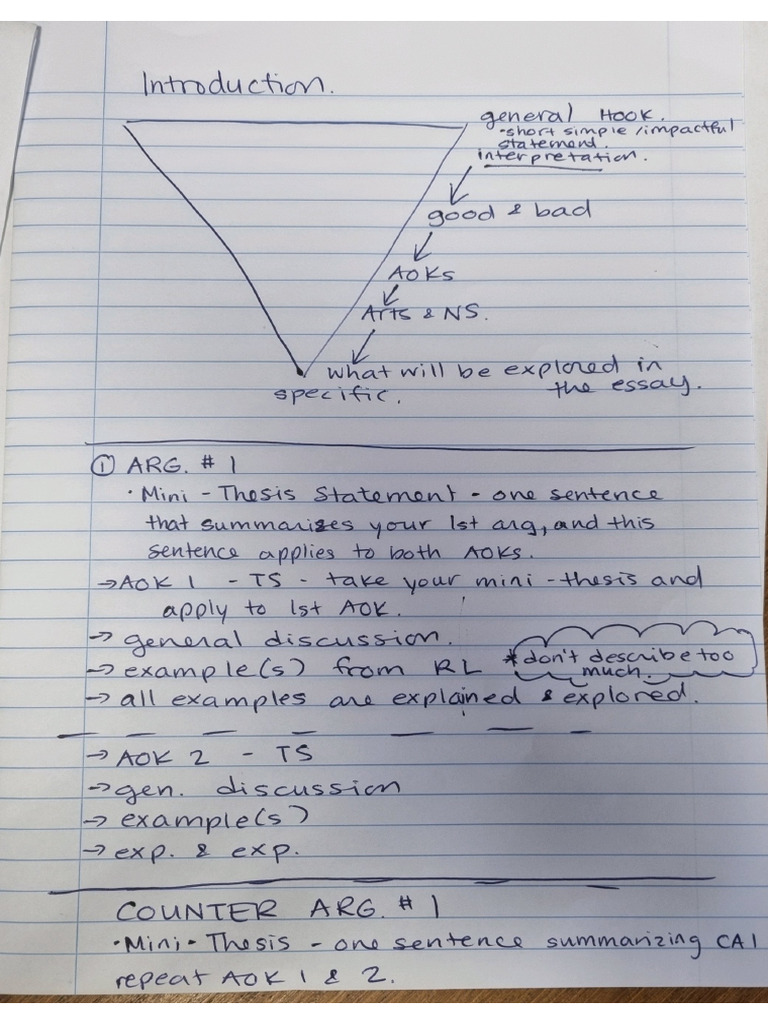 Introduction.
general Hook.
•short simple/impactful
statement.
interpretation.
good & bad
AOKs
Arts & NS.
what will be explored in
the essay.
specific.
① ARG. # 1
• Mini - Thesis Statement - one sentence
that summarizes your 1st arg, and this
sentence applies to both AOKs.
→ AOK 1 - TS - take your mini - thesis and
apply to 1st AOK.
→ general discussion.
→ example(s) from RL * don't describe too
much.
→ all examples are explained & explored.
→ AOK 2 - TS
→ gen. discussion
→ example(s)
→ exp. & exp.
COUNTER ARG. # 1
• Mini - Thesis - one sentence summarizing CA1
repeat AOK 1 & 2.